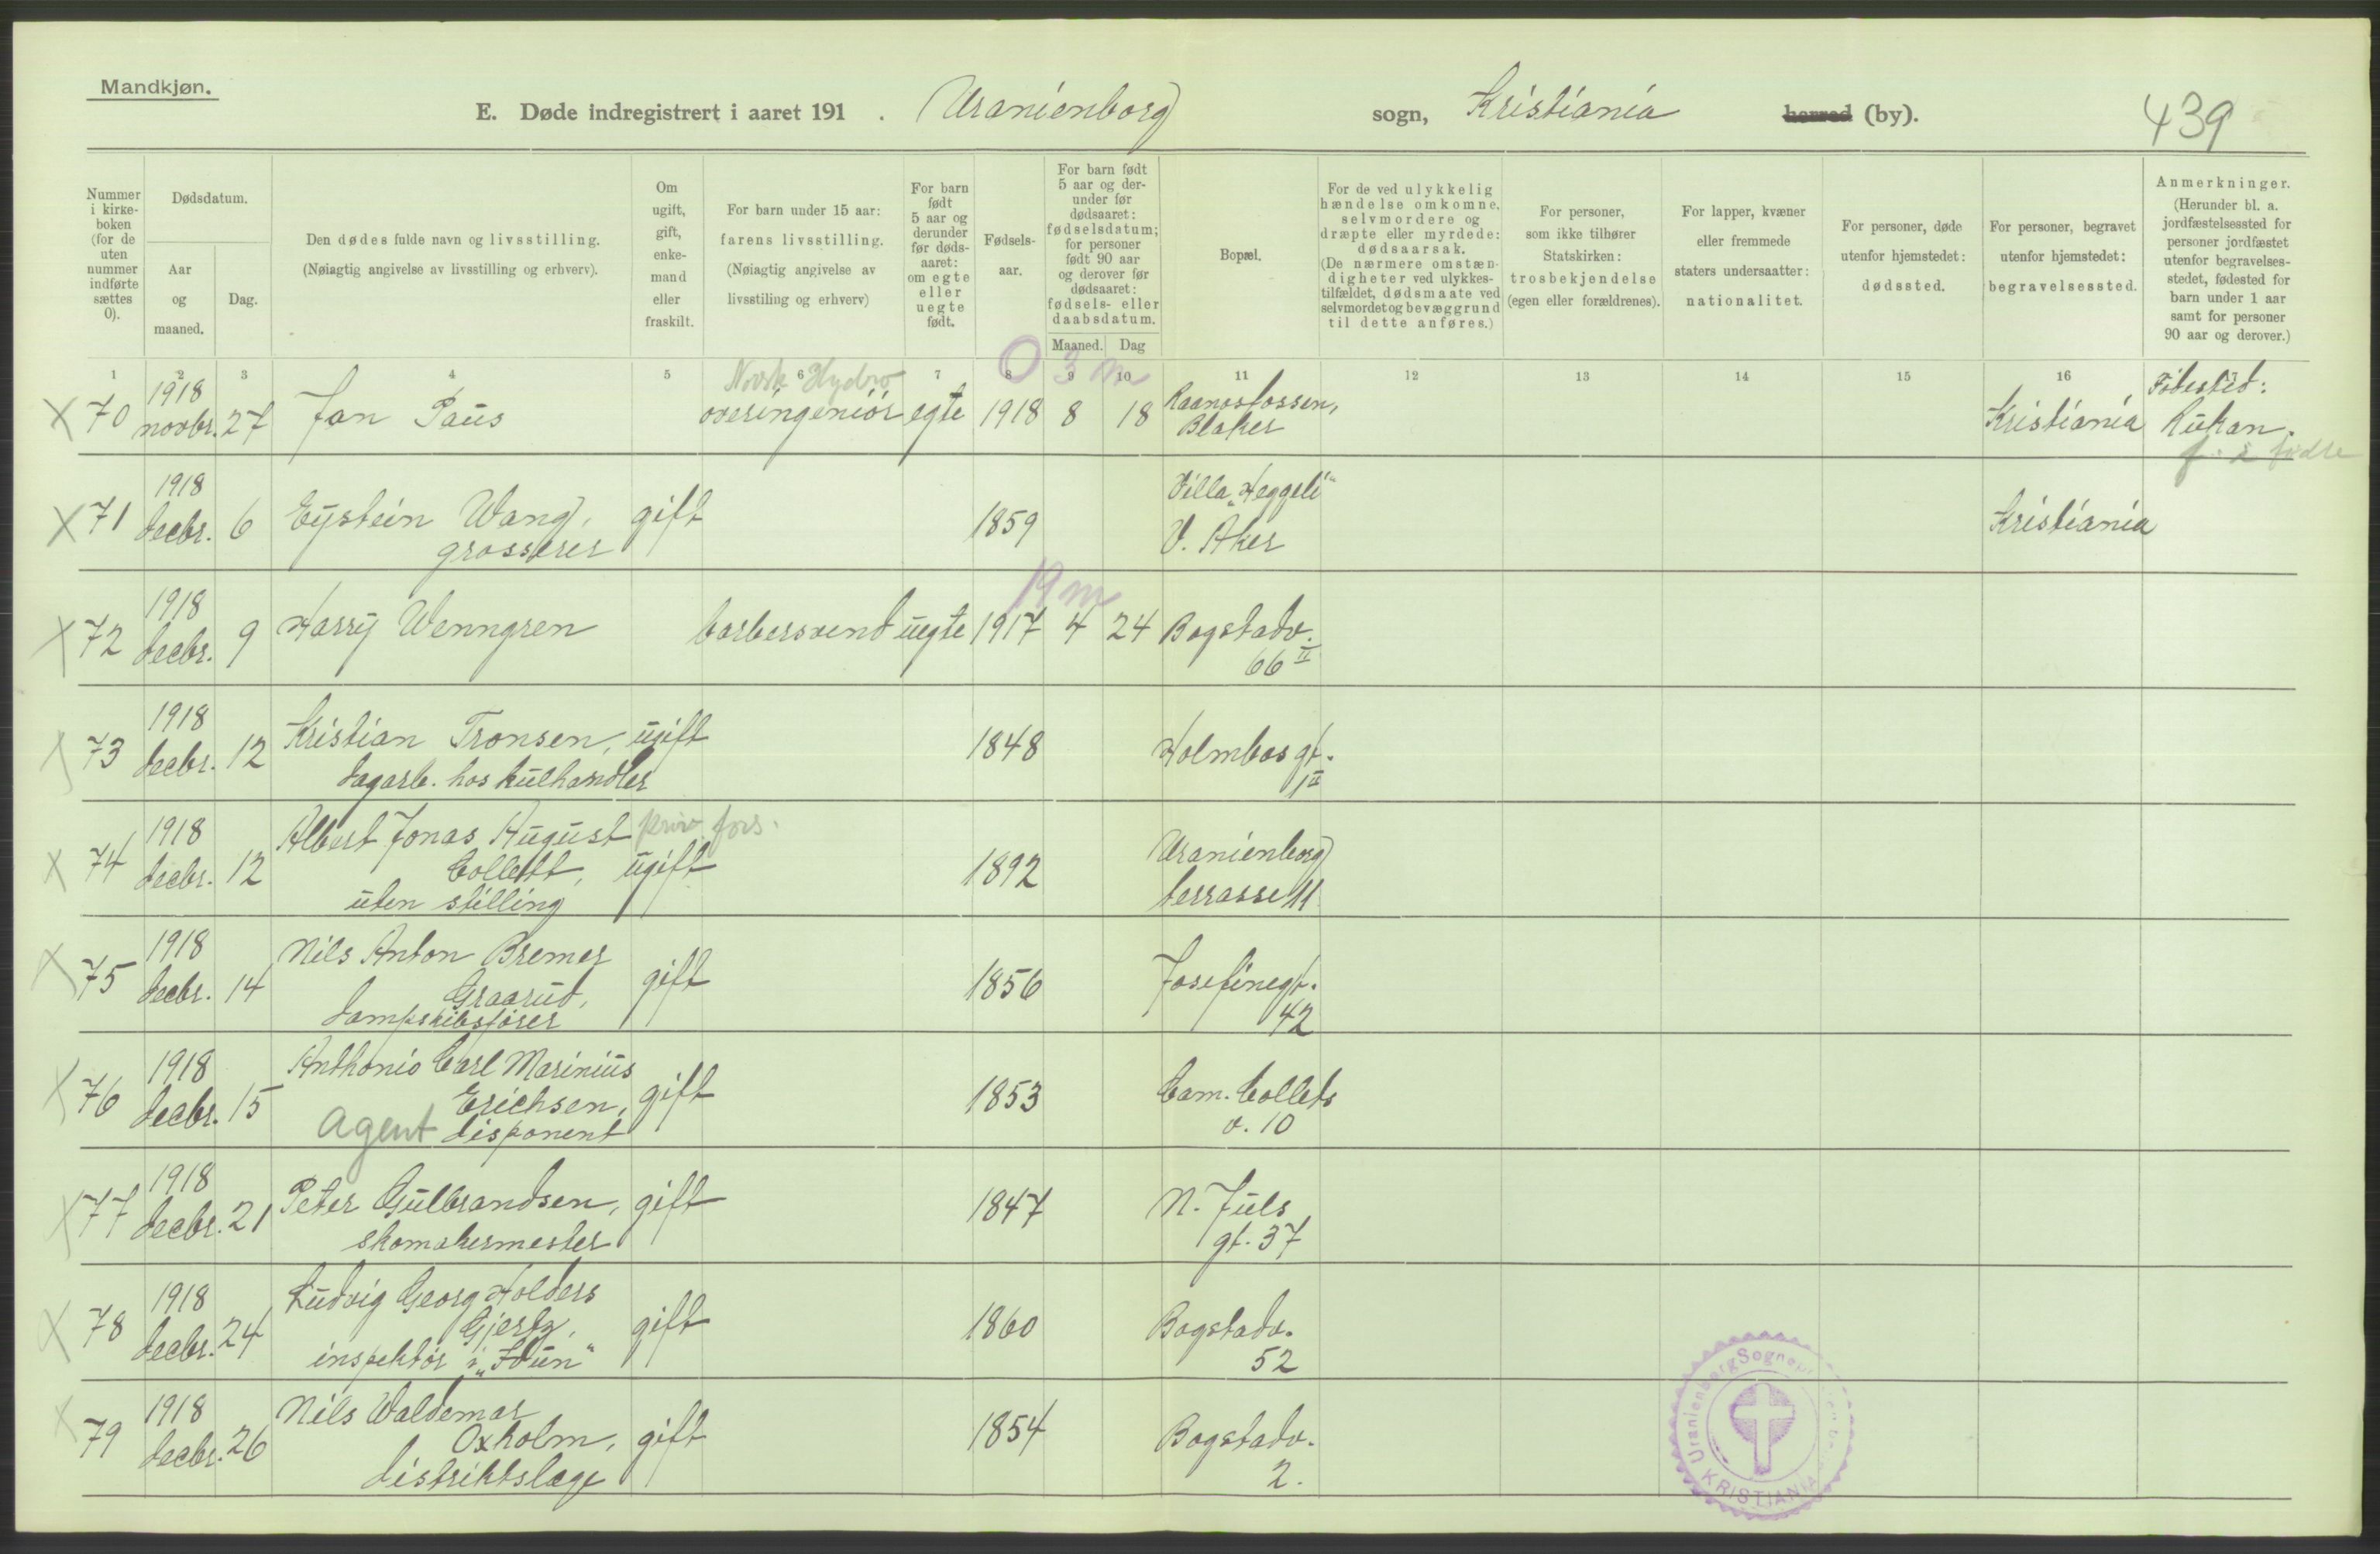 Mandkjøn.
E. Døde indregistrert i aaret 191 . Uranienborg sogn, Kristiania herred (by).
439
Nummer i kirkeboken (for de uten nummer indførte sættes 0).
Dødsdatum.
Aar og maaned.
Dag.
Den dødes fulde navn og livsstilling.
(Nøiagtig angivelse av livsstilling og erhverv).
Om ugift, gift, enkemand eller fraskilt.
For barn under 15 aar: farens livsstilling.
(Nøiagtig angivelse av livsstiling og erhverv)
For barn født 5 aar og derunder før dødsaaret: om egte eller uegte født.
Fødselsaar.
For barn født 5 aar og derunder før dødsaaret: fødselsdatum; for personer født 90 aar og derover før dødsaaret: fødsels- eller daabsdatum.
Maaned. Dag
Bopæl.
For de ved ulykkelig hændelse omkomne, selvmordere og dræpte eller myrdede: dødsaarsak.
(De nærmere omstændigheter ved ulykkestilfældet, dødsmaate ved selvmordet og bevæggrund til dette anføres.)
For personer, som ikke tilhører Statskirken: trosbekjendelse (egen eller forældrenes).
For lapper, kvæner eller fremmede staters undersaatter: nationalitet.
For personer, døde utenfor hjemstedet: dødssted.
For personer, begravet utenfor hjemstedet: begravelsessted.
Anmerkninger.
(Herunder bl. a. jordfæstelsessted for personer jordfæstet utenfor begravelsesstedet, fødested for barn under 1 aar samt for personer 90 aar og derover.)
1 2 3 4 5 6 7 8 9 10 11 12 13 14 15 16 17
Norsk Hydro 0 3 m Födested:
X 70 1918 novbr. 27 Jan Paus overingeniör egte 1918 8 18 Raanosfossen, Blaker Kristiania Rukan.
X 71 1918 decbr. 6 Eystein Wang, grosserer gift 1859 Villa "Heggeli" V. Aker Kristiania
19 m
X 72 1918 decbr. 9 Harry Wenngren barbersvend uegte 1917 4 24 Bogstadv. 66 II
73 1918 decbr. 12 Kristian Tronsen, ugift 1848 Holmbos gt. 1 II
dagarb. hos kulhandler
X 74 1918 decbr. 12 Albert Jonas August Collett, ugift priv. fors. 1892 Uranienborg terrasse 11
uten stilling
X 75 1918 decbr. 14 Nils Anton Bremer Graarud, gift 1856 Josefinegt. 42
dampskibsförer
X 76 1918 decbr. 15 Anthonio Carl Marinius Erichsen, gift 1853 Cam. Colletts v. 10
Agent disponent
X 77 1918 decbr. 21 Peter Gulbrandsen, gift 1847 N. Juls gt. 37
skomakermester
X 78 1918 decbr. 24 Ludvig Georg Holders Gjertz, gift 1860 Bogstadv. 52
inspektör i "Idun"
X 79 1918 decbr. 26 Nils Waldemar Oxholm, gift 1854 Bogstadv. 2.
distriktslæge
Uranienborg Sogne
KRISTIANIA